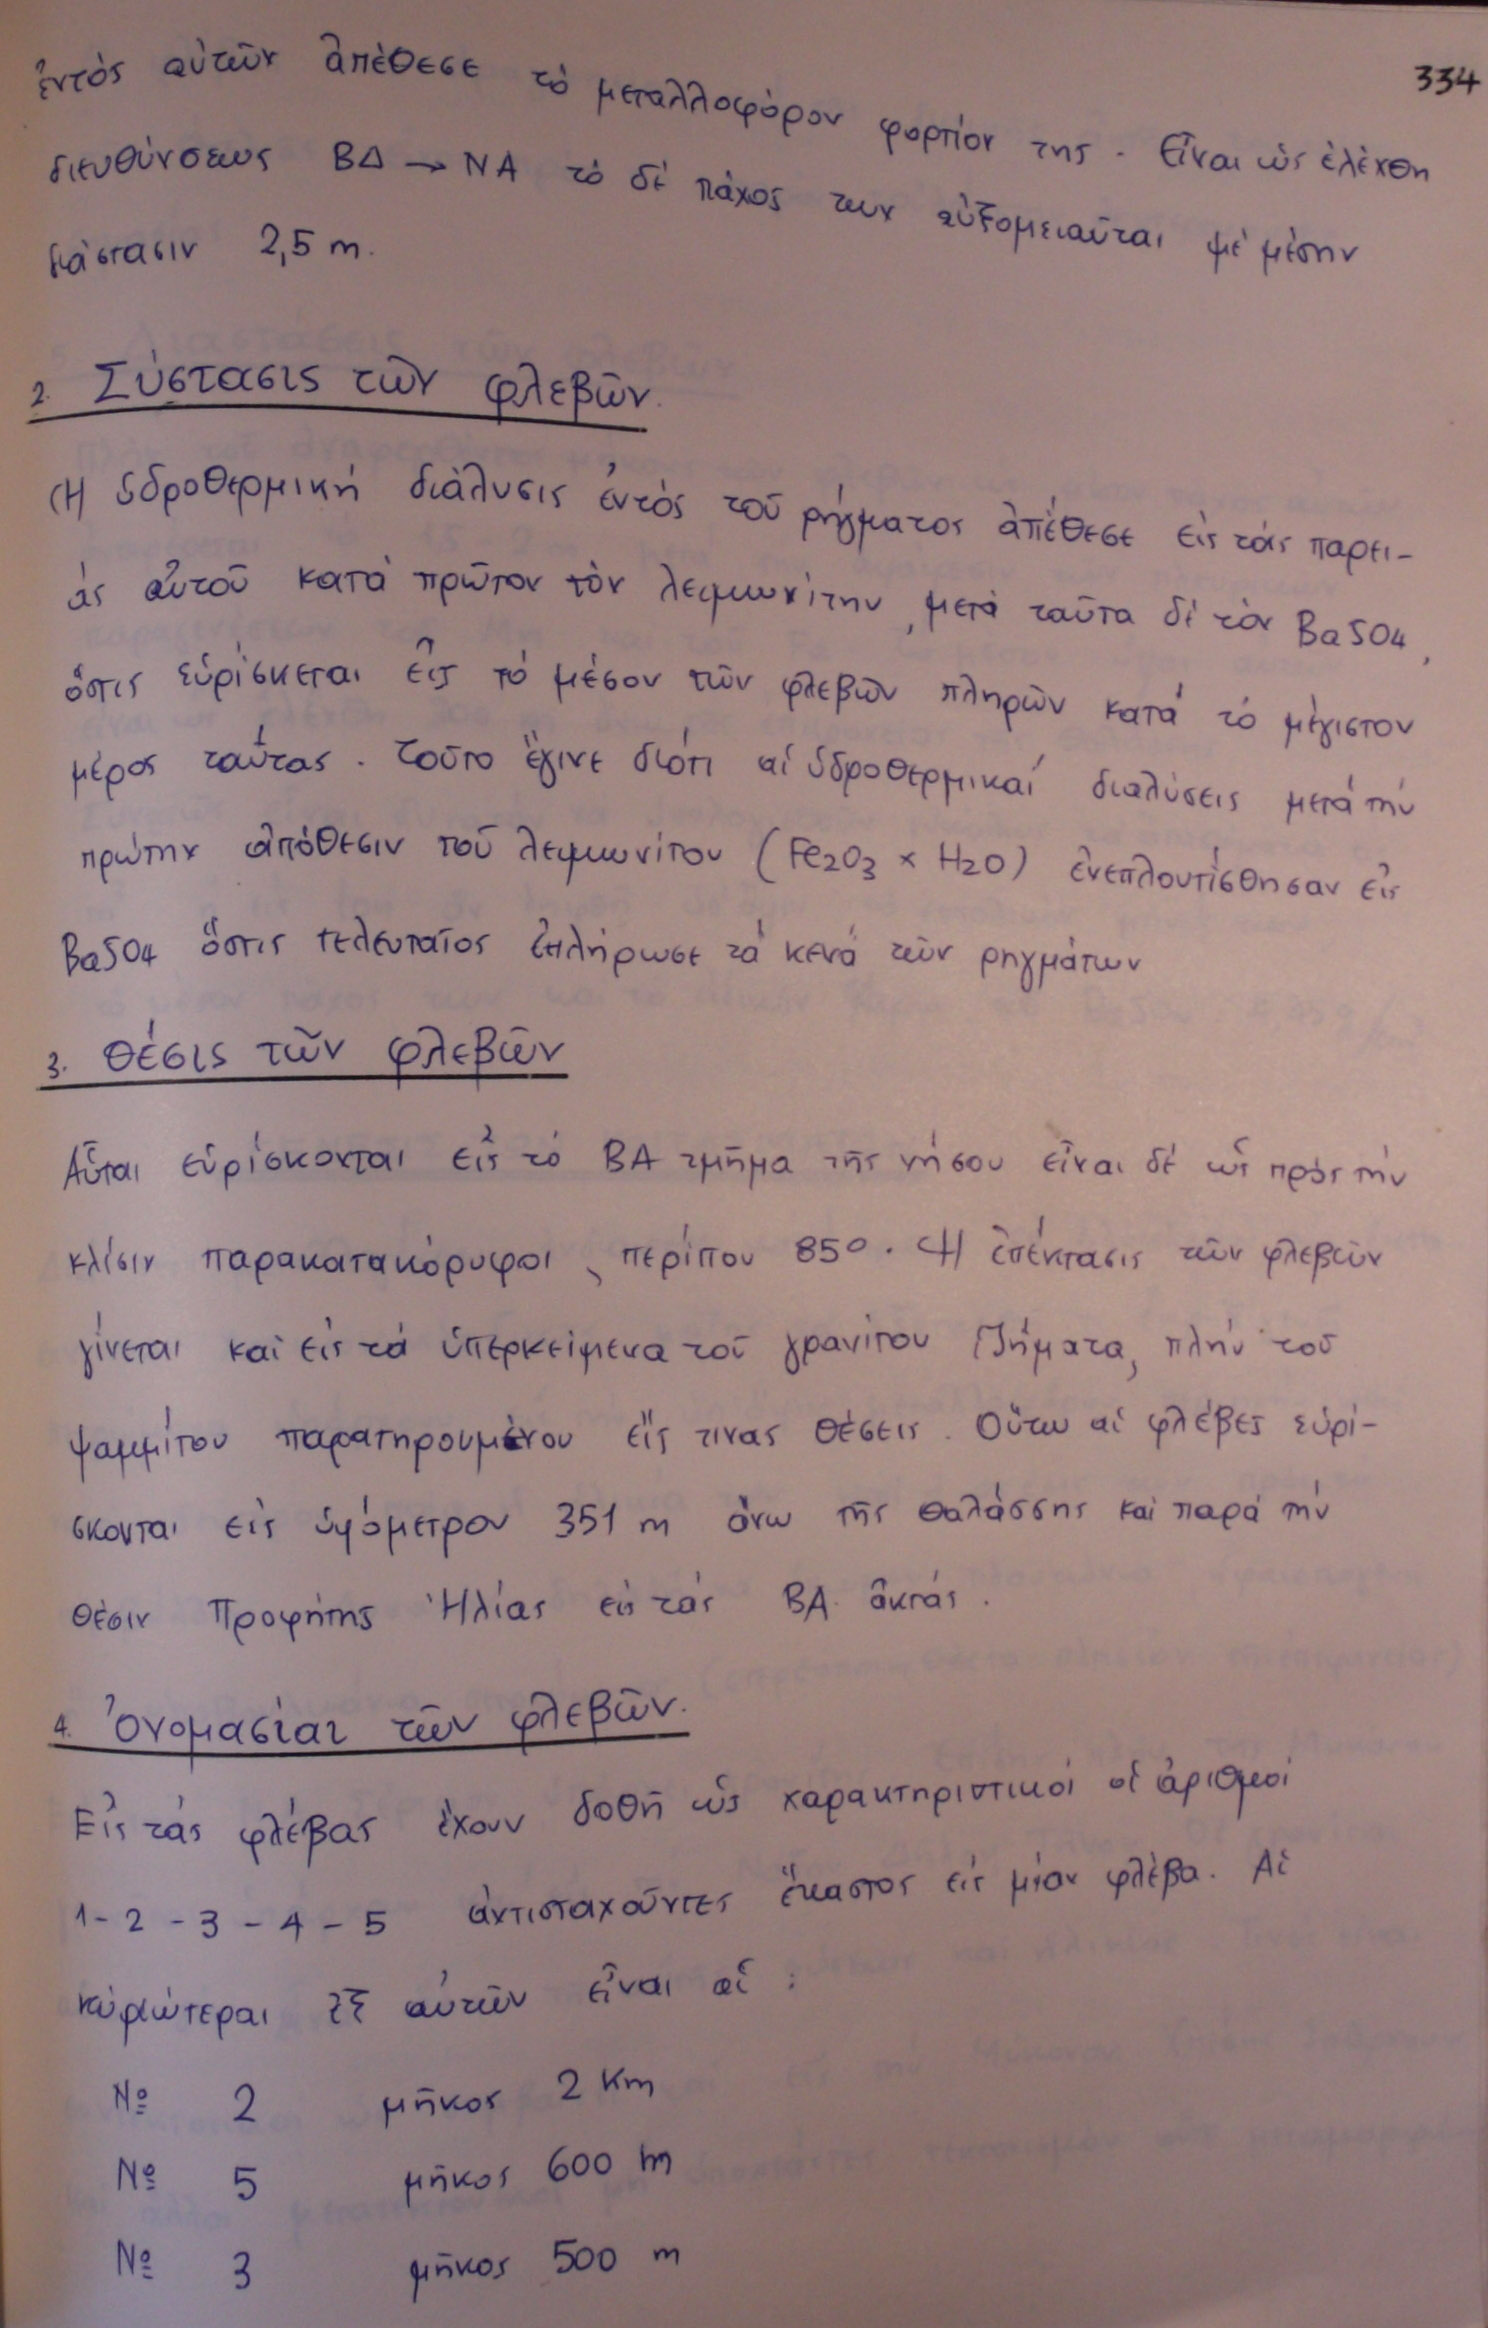 334
ἐντός αὐτῶν ἀπέθεσε τό μεταλλοφόρον φορτίον της. Εἶναι ὡς ἐλέχθη
διευθύνσεως ΒΔ → ΝΑ τό δέ πάχος των αὐξομειοῦται μέ μέσην
διάστασιν 2,5 m.
2. Σύστασις τῶν φλεβῶν.
Ἡ ὑδροθερμική διάλυσις ἐντός τοῦ ρήγματος ἀπέθεσε εἰς τάς παρει-
άς αὐτοῦ κατά πρῶτον τόν λειμωνίτην, μετά ταῦτα δέ τόν BaSO4,
ὅστις εὑρίσκεται εἰς τό μέσον τῶν φλεβῶν πληρῶν κατά τό μέγιστον
μέρος ταύτας. Τοῦτο ἔγινε διότι αἱ ὑδροθερμικαί διαλύσεις μετά τήν
πρώτην ἀπόθεσιν τοῦ λειμωνίτου (Fe2O3 x H2O) ἐνεπλουτίσθησαν εἰς
BaSO4 ὅστις τελευταῖος ἐπλήρωσε τά κενά τῶν ρηγμάτων
3. Θέσις τῶν φλεβῶν
Αὗται εὑρίσκονται εἰς τό ΒΑ τμῆμα τῆς νήσου εἶναι δέ ὡς πρός τήν
κλίσιν παρακατακόρυφοι, περίπου 85°. Ἡ ἐπέκτασις τῶν φλεβῶν
γίνεται καὶ εἰς τά ὑπερκείμενα τοῦ γρανίτου ἰζήματα, πλήν τοῦ
ψαμμίτου παρατηρουμένου εἴς τινας θέσεις. Οὕτω αἱ φλέβες εὑρί-
σκονται εἰς ὑψόμετρον 351 m ἄνω τῆς θαλάσσης καί παρά τήν
θέσιν Προφήτης Ἠλίας εἰς τάς ΒΑ. ἀκτάς.
4. Ὀνομασίαι τῶν φλεβῶν.
Εἰς τάς φλέβας ἔχουν δοθῆ ὡς χαρακτηριστικοί οἱ ἀριθμοί
1 - 2 - 3 - 4 - 5 ἀντιστοιχοῦντες ἕκαστος εἰς μίαν φλέβα. Αἱ
κυριώτεραι ἐξ αὐτῶν εἶναι αἱ :
Nº 2 μῆκος 2 Km
Nº 5 μῆκος 600 m
Nº 3 μῆκος 500 m